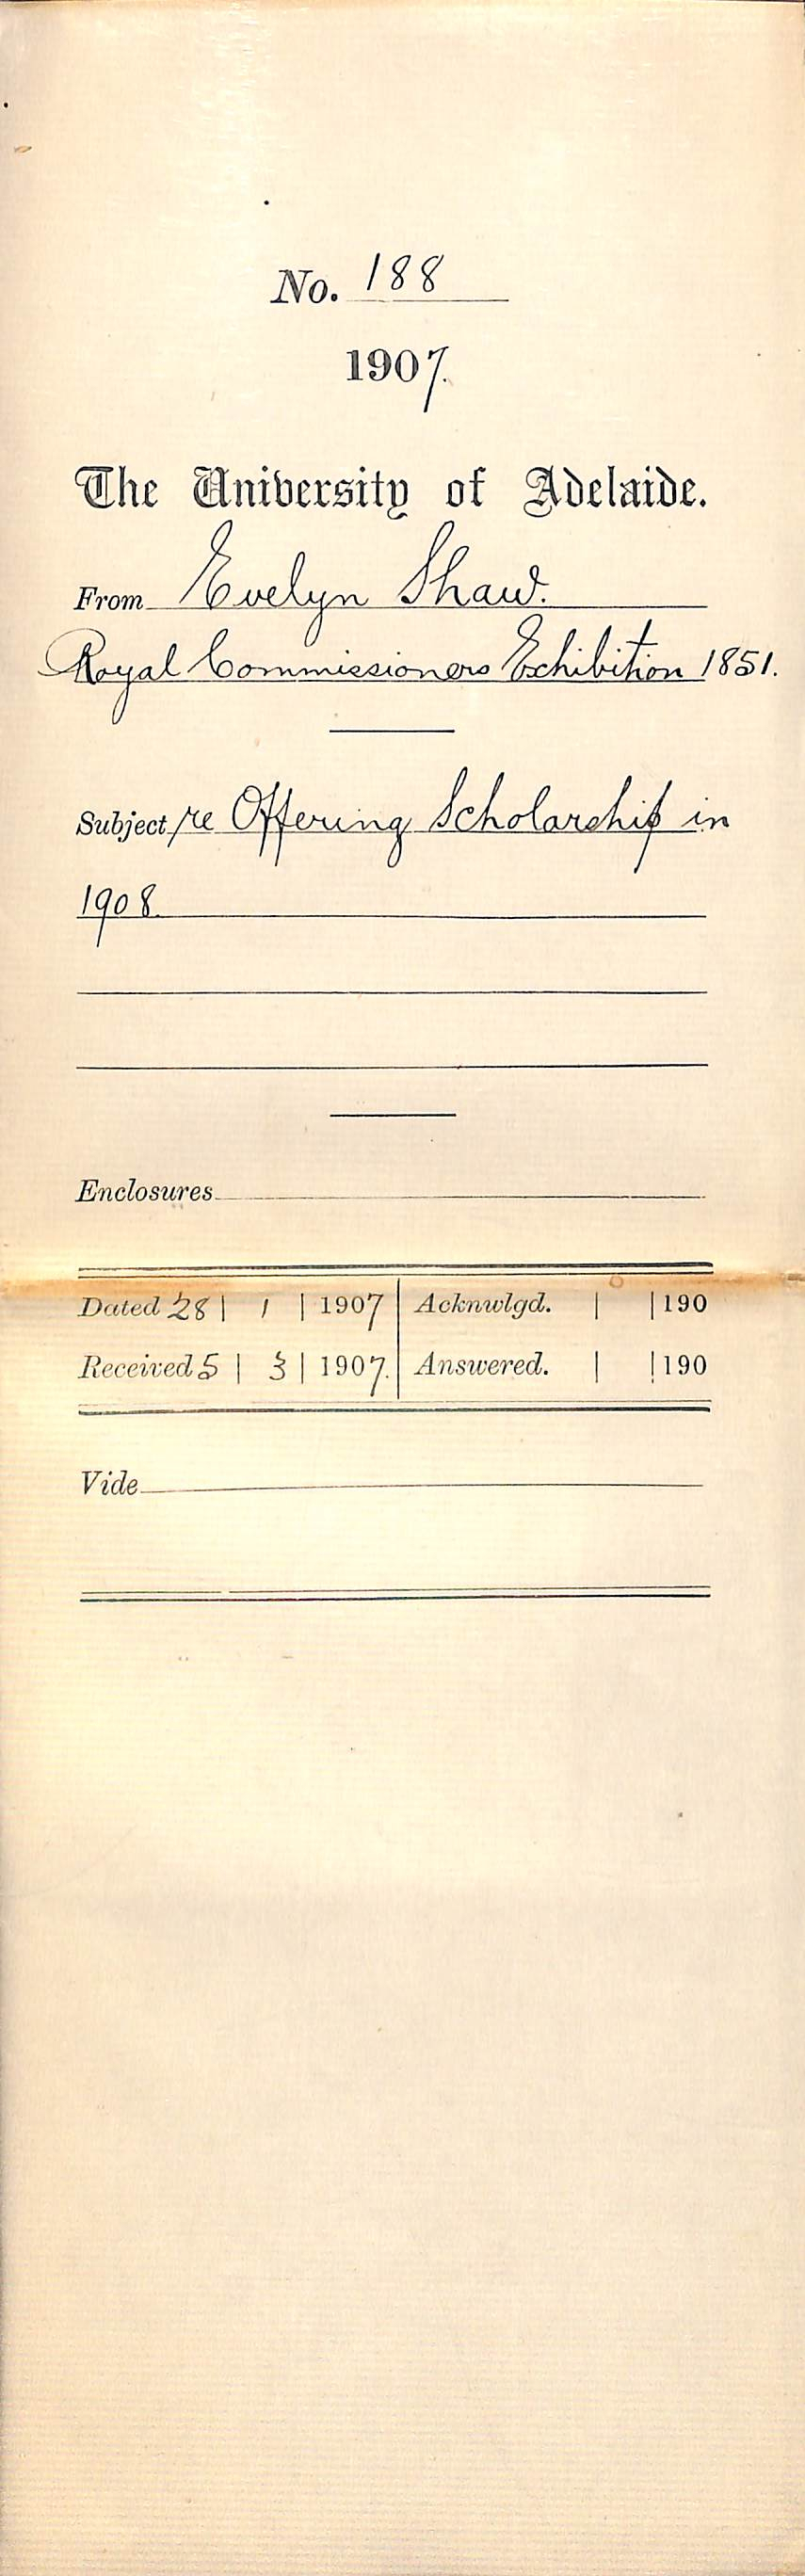 No. 188
1907.
The University of Adelaide.
From Evelyn Shaw.
Royal Commissioners Exhibition 1851.
Subject re Offering Scholarship in
1908.
Enclosures
Dated 28 | 1 | 1907 | Acknwlgd. | | 190
Received 5 | 3 | 1907. | Answered. | | 190
Vide